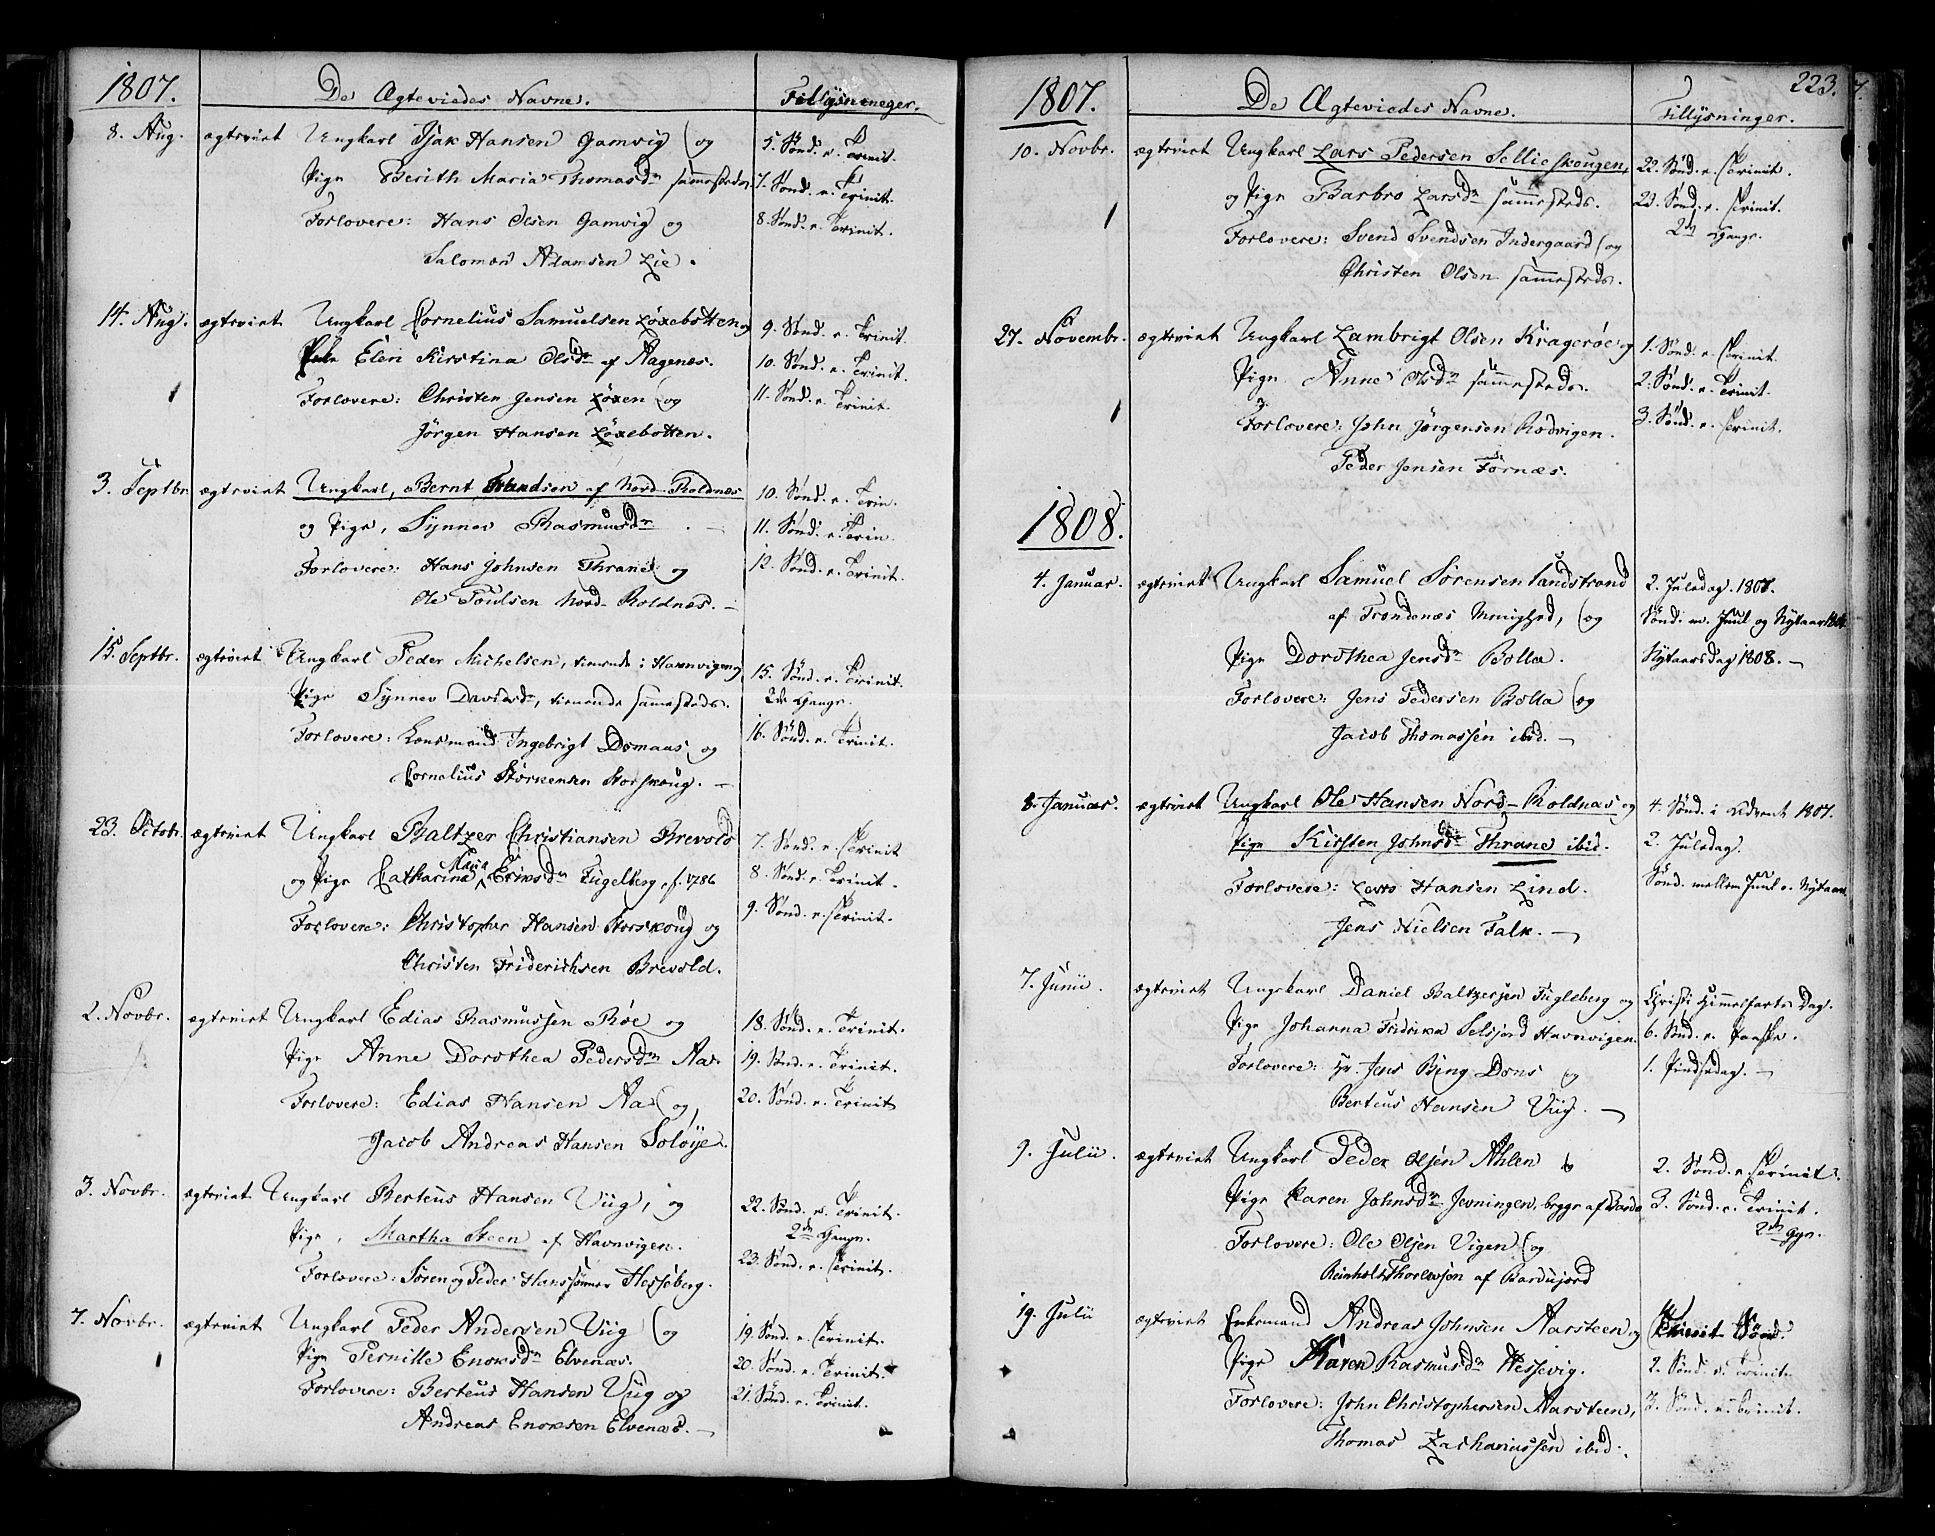 1807.
De Ægteviedes Navne.
Tillysninger.
8. Aug. ægteviet Ungkarl Isak Hansen Gamvig og
Pige Berith Maria Thomasdr sammesteds.
Forlovere: Hans Olsen Gamvig og
Salomon Adamsen Lie.
5. Sönd. e. Trinit.
7. Sönd. e. Trinit.
8. Sönd. e. Trinit.
14. Aug. ægteviet Ungkarl Cornelius Samuelsen Löxebotten og
Elen Kirstina Olsdr af Aagenæs.
Forlovere: Christen Jensen Löxen og
Jörgen Hansen Löxebotten.
9. Sönd. e. Trinit.
10. Sönd. e. Trinit.
11. Sönd. e. Trinit.
3. Septbr. ægteviet Ungkarl, Bernt Trandsen af Nord-Roldnæs
og Pige, Synnev Rasmusdr
Forlovere: Hans Johnsen Thrane og
Ole Poulsen Nord-Roldnæs.
10. Sönd. e. Trin.
11. Sönd. e. Trin.
12. Sönd. e. Trinit.
15. Septbr. ægteviet Ungkarl Peder Michelsen, tienende i Havnvigen og
Pige Synnev Davidsdr, tienende sammesteds.
Forlovere: Lensmand Ingebrigt Domaas og
Cornelius Störkensen Storskoug.
15. Sönd. e. Trinit.
2de Gange.
16. Sönd. e. Trinit.
23. Octobr. ægteviet Ungkarl Baltzer Christiansen Brevold
og Pige Catharina Maria Eriksdr Fugelberg, f. 1786
Forlovere: Christopher Hansen Storskoug og
Christen Friderichsen Brevold.
7. Sönd. e. Trinit
8. Sönd. e. Trinit.
9. Sönd. e. Trinit.
2. Novbr. ægteviet Ungkarl Edias Rasmussen Röe og
Pige Anne Dorothea Pedersdr Aa.
Forlovere: Edias Hansen Aa og,
Jacob Andreas Hansen Solöye.
18. Sönd. e. Trinit.
19. Sönd. e. Trinit.
20. Sönd. e. Trinit
3. Novbr. ægteviet Ungkarl Berteus Hansen Viig, og
Pige, Martha Steen af Havnvigen.
Forlovere: Sören og Peder Hanssönner Hesseberg.
22. Sönd. e. Trinit.
2de Gange.
23. Sönd. e. Trinit.
7. Novbr. ægteviet Ungkarl Peder Andersen Viig og
Pige Pernille Enoksdr Elvenæs.
Forlovere: Berteus Hansen Viig og
Andreas Enoksen Elvenæs.
19. Sönd. e. Trinit.
20. Sönd. e. Trinit.
21. Sönd. e. Trinit.
223.
1807.
De Ægteviedes Navne.
Tillysninger.
10. Novbr. ægteviet Ungkarl Lars Pedersen Sellieskougen,
og Pige Barbro Larsdr sammesteds.
Forlovere: Svend Svendsen Indergaard og
Christen Olsen sammesteds.
22. Sönd. e. Trinit.
23. Sönd. e. Trinit.
2de Gange.
27. Novembr. ægteviet Ungkarl Lambrigt Olsen Krageröe og
Pige Anne Olsdr sammesteds.
Forlovere: John Jörgensen Rodvigen.
Peder Jensen Fornæs.
1. Sönd. e. Trinit.
2. Sönd. e. Trinit.
3. Sönd. e. Trinit.
1808.
4. Januar. ægteviet Ungkarl Samuel Sörensen Sandstrand
af Trondenæs Menighed, og
Pige Dorothea Jensdr Bolla.
Forlovere: Jens Pedersen Bolla og
Jacob Thomassen ibid.
2. Juledag. 1807.
Sönd. m. Juul og Nytaar
Nytaarsdag 1808.
8. Januar. ægteviet Ungkarl Ole Hansen Nord-Roldnæs og
Pige Kirsten Johnsdr Thrane ibid.
Forlovere: Lars Hansen Lind.
Jens Nielsen Falk.
4. Sönd. i Advent 1807.
2. Juledag.
Sönd. mellem Juul o. Nytaar
7. Junii. ægteviet Ungkarl Daniel Baltzersen Fugleberg og
Pige Johanna Fredrika Selsjord Havnvigen.
Forlovere: Hr. Jens Bing Dons og
Berteus Hansen Viig.
Christi Himmelfarts Dag.
6. Sönd. e. Paaske.
1. Pindsedag.
9. Julii. ægteviet Ungkarl Peder Olsen Ahlen &
Pige Karen Johnsdr Jevningen, begge af Bardo
Forlovere: Ole Olsen Vigen og
Reinholt Thorlevsen af Bardujord
2. Sönd. e. Trinit.
3. Sönd. e. Trinit.
2de Ggr.
19. Julii ægteviet Enkemand Andreas Johnsen Aarsteen, og
Pige Karen Rasmusdr Hessevig.
Forlovere: John Christophersen Aarsteen,
Thomas Zachariassen ibid.
2. Sönd. e. Trinit.
3. Sönd. e. Trinit.